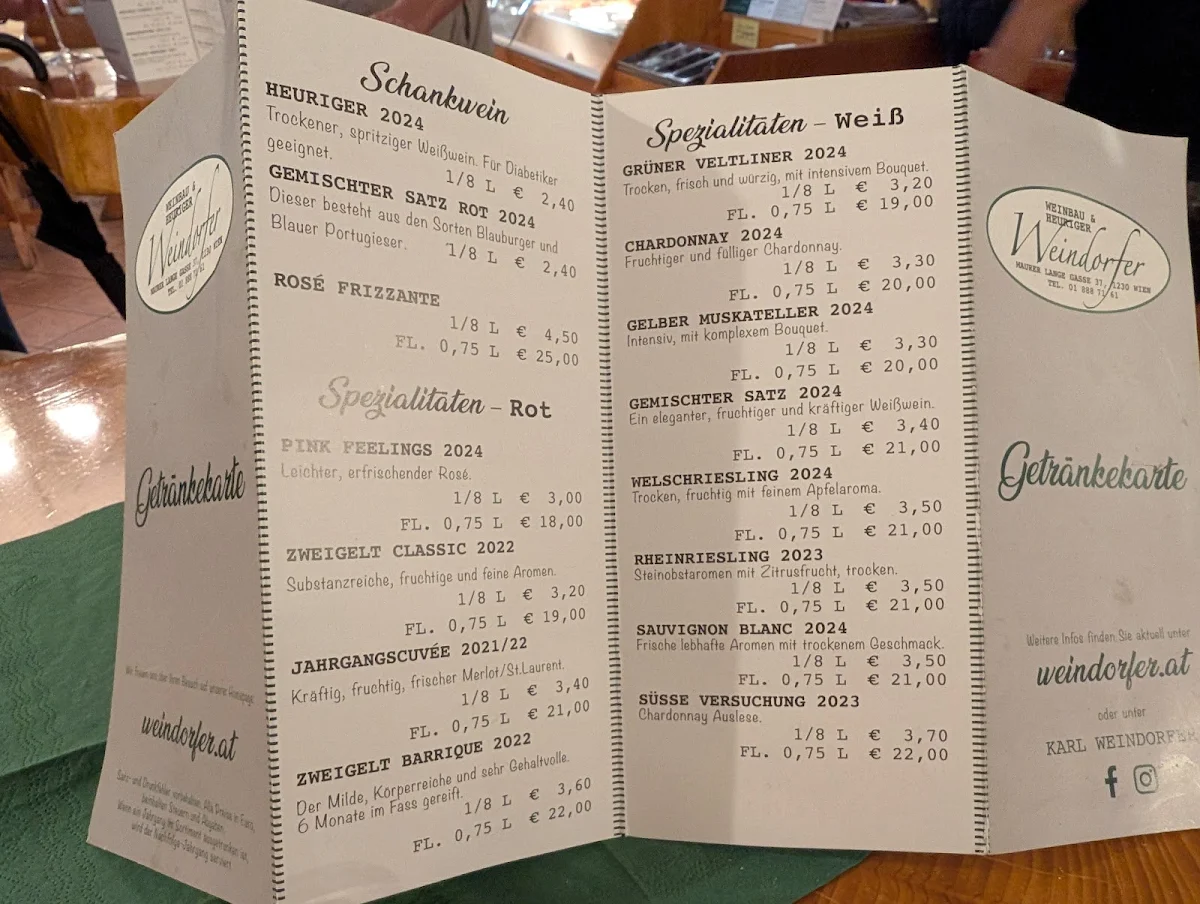 WEINBAU &
HEURIGER
Weindorfer
MAURER LANGE GASSE 37, 1230 WIEN
TEL. 01 888 71 61
Getränkekarte
Wir freuen uns über Ihren Besuch auf unserer Homepage
weindorfer.at
Satz- und Druckfehler vorbehalten. Alle Preise in Euro,
beinhalten Steuern und Abgaben.
Wenn ein Jahrgang im Sortiment ausgetrunken ist,
wird der Nachfolge-Jahrgang serviert.
Schankwein
HEURIGER 2024
Trockener, spritziger Weißwein. Für Diabetiker
geeignet.
1/8 L € 2,40
GEMISCHTER SATZ ROT 2024
Dieser besteht aus den Sorten Blauburger und
Blauer Portugieser.
1/8 L € 2,40
ROSÉ FRIZZANTE
1/8 L € 4,50
FL. 0,75 L € 25,00
Spezialitäten – Rot
PINK FEELINGS 2024
Leichter, erfrischender Rosé.
1/8 L € 3,00
FL. 0,75 L € 18,00
ZWEIGELT CLASSIC 2022
Substanzreiche, fruchtige und feine Aromen.
1/8 L € 3,20
FL. 0,75 L € 19,00
JAHRGANGSCUVÉE 2021/22
Kräftig, fruchtig, frischer Merlot/St.Laurent.
1/8 L € 3,40
FL. 0,75 L € 21,00
ZWEIGELT BARRIQUE 2022
Der Milde, Körperreiche und sehr Gehaltvolle.
6 Monate im Fass gereift.
1/8 L € 3,60
FL. 0,75 L € 22,00
Spezialitäten – Weiß
GRÜNER VELTLINER 2024
Trocken, frisch und würzig, mit intensivem Bouquet.
1/8 L € 3,20
FL. 0,75 L € 19,00
CHARDONNAY 2024
Fruchtiger und fülliger Chardonnay.
1/8 L € 3,30
FL. 0,75 L € 20,00
GELBER MUSKATELLER 2024
Intensiv, mit komplexem Bouquet.
1/8 L € 3,30
FL. 0,75 L € 20,00
GEMISCHTER SATZ 2024
Ein eleganter, fruchtiger und kräftiger Weißwein.
1/8 L € 3,40
FL. 0,75 L € 21,00
WELSCHRIESLING 2024
Trocken, fruchtig mit feinem Apfelaroma.
1/8 L € 3,50
FL. 0,75 L € 21,00
RHEINRIESLING 2023
Steinobstaromen mit Zitrusfrucht, trocken.
1/8 L € 3,50
FL. 0,75 L € 21,00
SAUVIGNON BLANC 2024
Frische lebhafte Aromen mit trockenem Geschmack.
1/8 L € 3,50
FL. 0,75 L € 21,00
SÜSSE VERSUCHUNG 2023
Chardonnay Auslese.
1/8 L € 3,70
FL. 0,75 L € 22,00
WEINBAU &
HEURIGER
Weindorfer
MAURER LANGE GASSE 37, 1230 WIEN
TEL. 01 888 71 61
Getränkekarte
Weitere Infos finden Sie aktuell unter
weindorfer.at
oder unter
KARL WEINDORFER